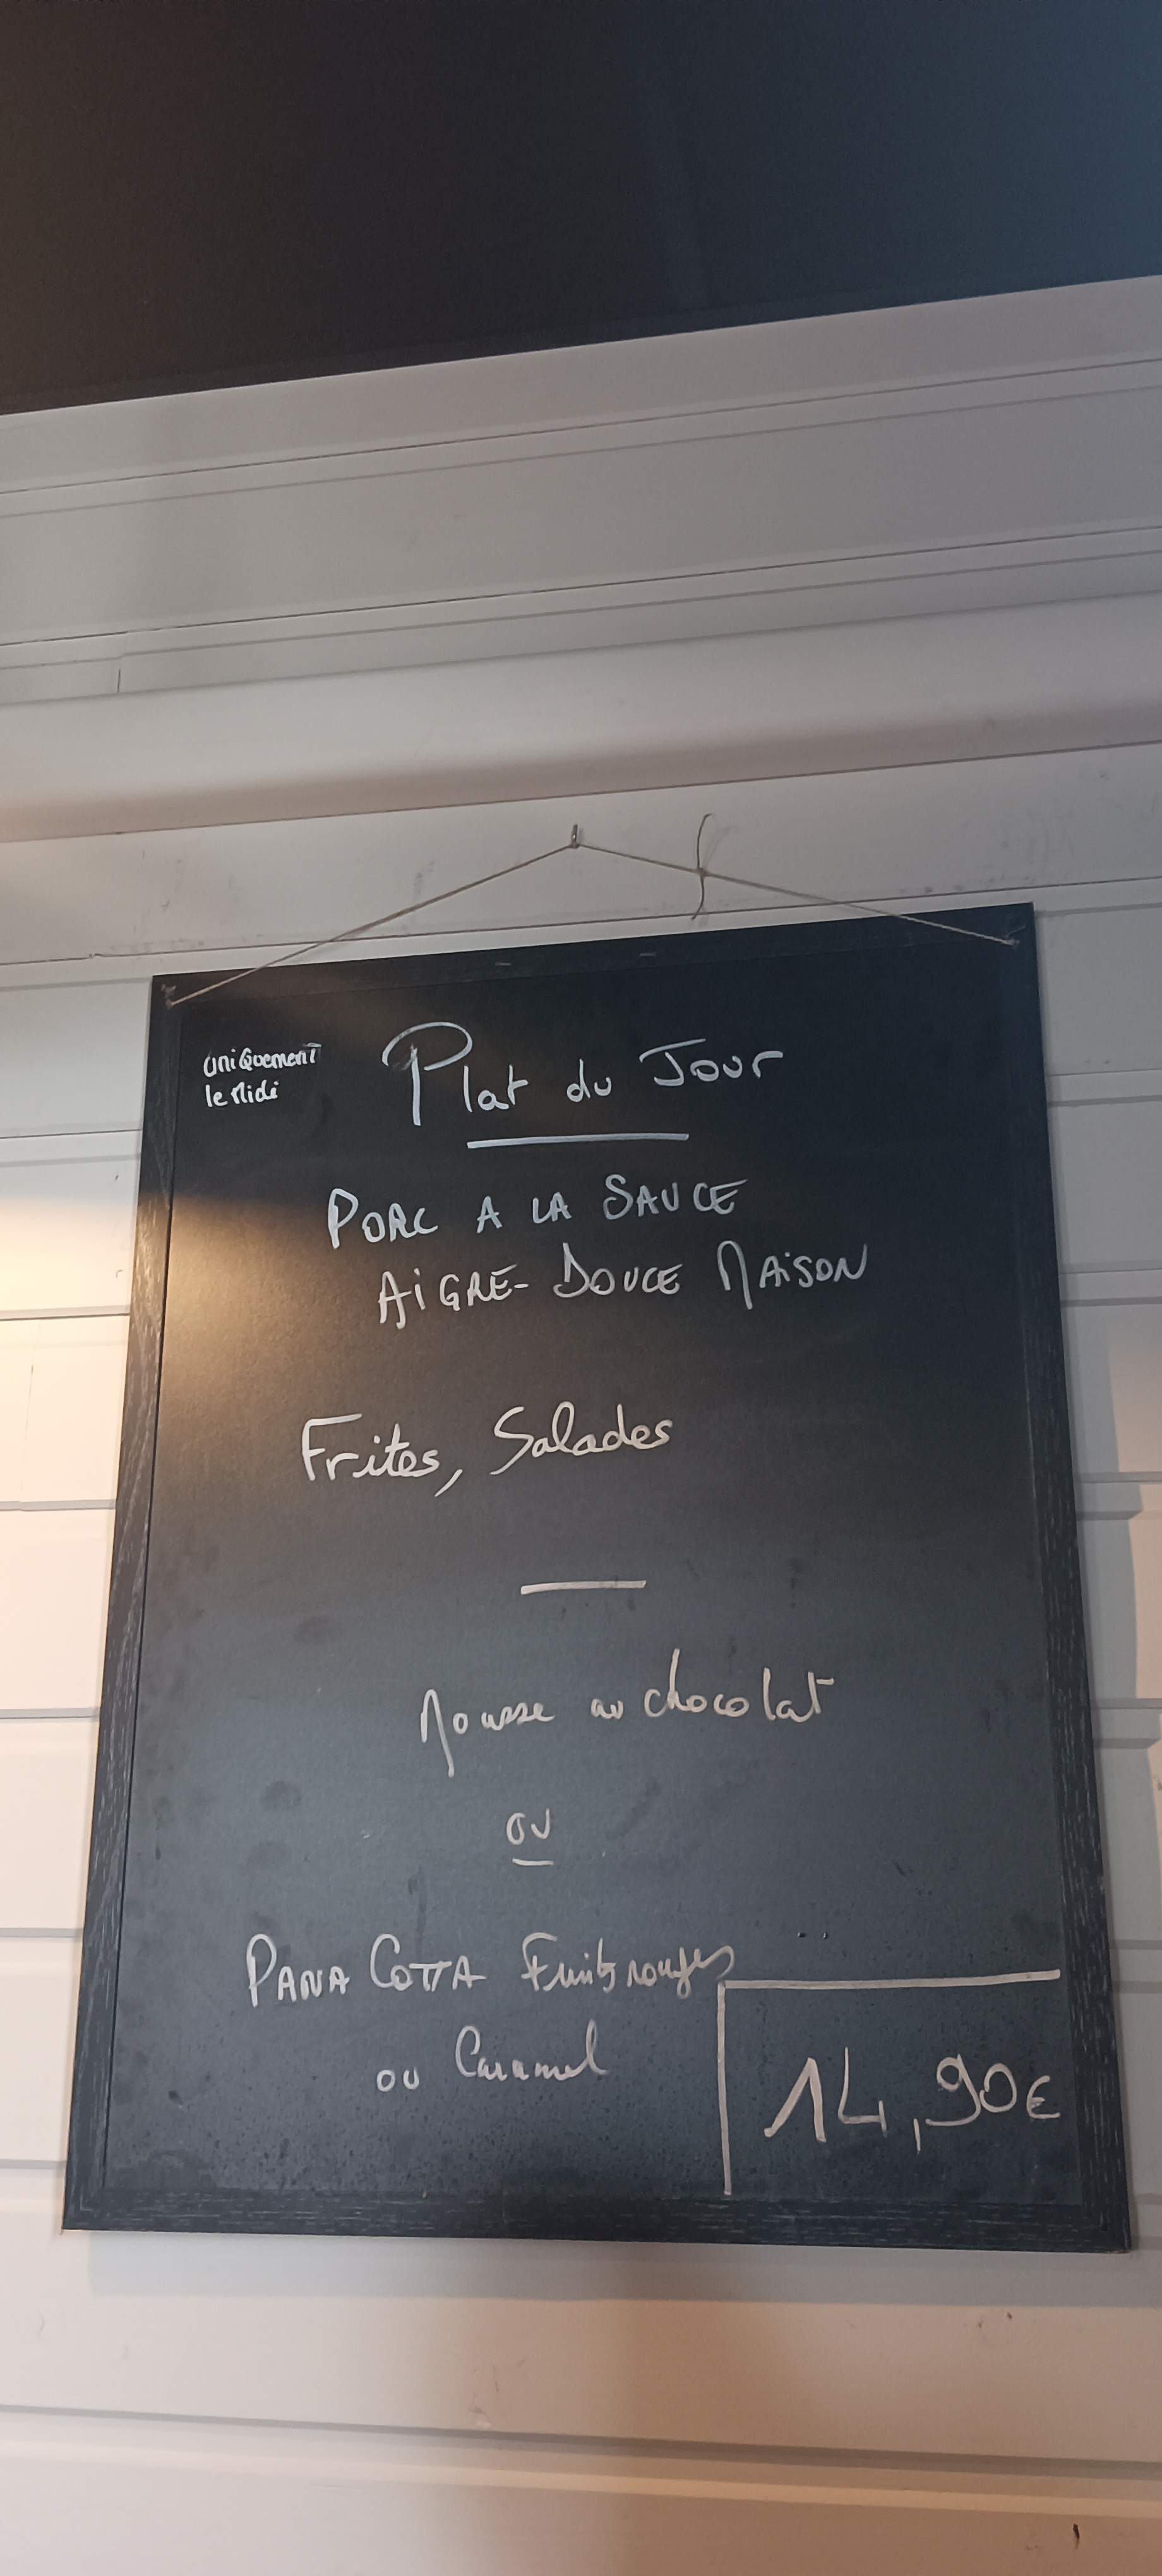 uniquement
le Midi
Plat du Jour
PORC A LA SAUCE
AIGRE-DOUCE MAISON
Frites, Salades
Mousse au chocolat
ou
PANA COTTA Fruits rouges
ou Caramel
14,90€